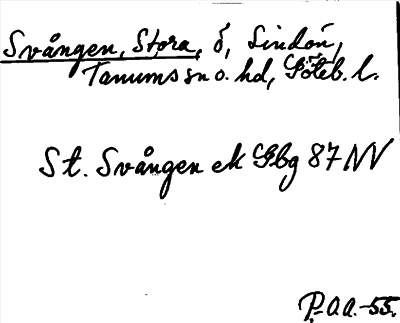 Svången, Stora, ö, Lindön,
Tanums sn o. hd, Göteb. l.
St. Svången ek Gbg 87 NV
P.-a.a.-55.